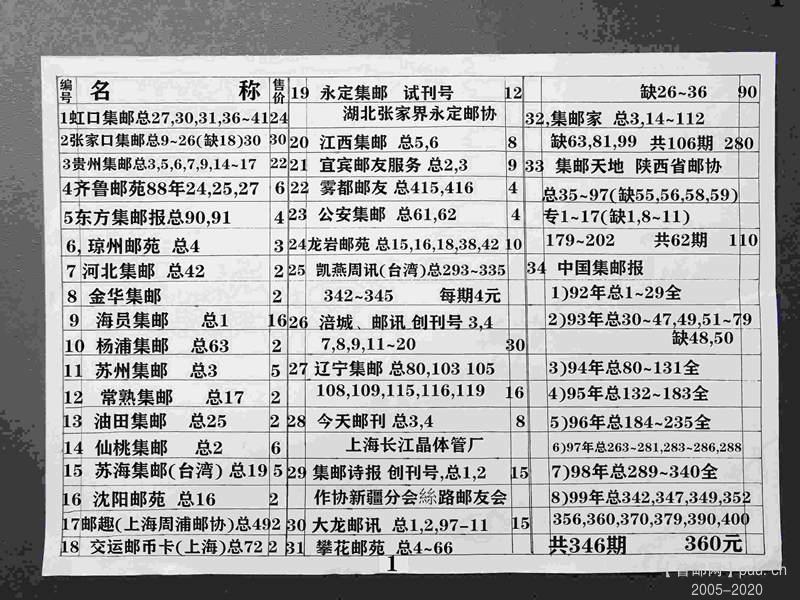 编号 名 称 售价
1虹口集邮总27,30,31,36~41 24
2张家口集邮总9~26(缺18)30 30
3贵州集邮总3,5,6,7,9,14~17 22
4齐鲁邮苑88年24,25,27 6
5东方集邮报总90,91 4
6,琼州邮苑 总4 3
7河北集邮 总42 2
8 金华集邮 2
9 海员集邮 总1 16
10 杨浦集邮 总63 2
11 苏州集邮 总3 5
12 常熟集邮 总17 2
13 油田集邮 总25 2
14 仙桃集邮 总2 6
15 苏海集邮(台湾) 总19 5
16 沈阳邮苑 总16 2
17邮趣(上海周浦邮协)总49 2
18 交运邮币卡(上海)总72 2
19 永定集邮 试刊号 12
湖北张家界永定邮协
20 江西集邮 总5,6 8
21 宜宾邮友服务 总2,3 9
22 雾都邮友 总415,416 4
23 公安集邮 总61,62 4
24龙岩邮苑 总15,16,18,38,42 10
25 凯燕周讯(台湾)总293~335
342~345 每期4元
26 涪城、邮讯 创刊号 3,4
7,8,9,11~20 30
27 辽宁集邮 总80,103 105
108,109,115,116,119 16
28 今天邮刊 总3,4 8
上海长江晶体管厂
29 集邮诗报 创刊号,总1,2 15
作协新疆分会絲路邮友会
30 大龙邮讯 总1,2,97-11 15
31 攀花邮苑 总4~66
缺26~36 90
32,集邮家 总3,14~112
缺63,81,99 共106期 280
33 集邮天地 陕西省邮协
总35~97(缺55,56,58,59)
专1~17(缺1,8~11)
179~202 共62期 110
34 中国集邮报
1)92年总1~29全
2)93年总30~47,49,51~79
缺48,50
3)94年总80~131全
4)95年总132~183全
5)96年总184~235全
6)97年总263~281,283~286,288
7)98年总289~340全
8)99年总342,347,349,352
356,360,370,379,390,400
共346期 360元
1
2005-2020